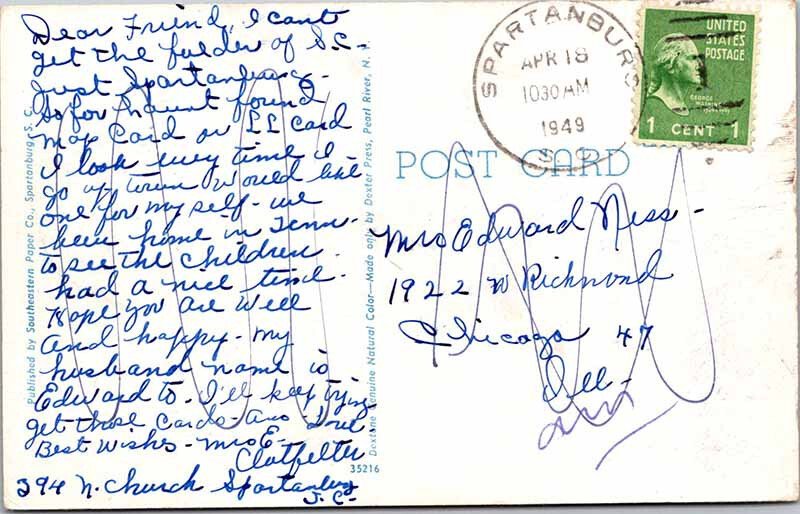 Dear Friend, I cant
get the folder of S.C-
just Spartanburg-
So far haunt found
map Card or LL Card
I look every time I
go up town would like
one for my self- we
been home in Tenn-
to see the Children.
had a nice time.
Hope you are well
and happy- my
husband name is
Edward to. I'll keep trying
get those Cards- ans - Love
Best Wishes- Mrs E-
Clotfelter
394 N. Church Spartanburg
S.C-
Published by Southeastern Paper Co., Spartanburg, S. C.
Dextone Genuine Natural Color—Made only by Dexter Press, Pearl River, N. Y.
35216
SPARTANBURG
APR 18
1030 AM
1949
S. C.
UNITED
STATES
POSTAGE
GEORGE
1 CENT 1
POST CARD
Mrs Edward Ness-
1922 W Richmond
Chicago 47
Ill-